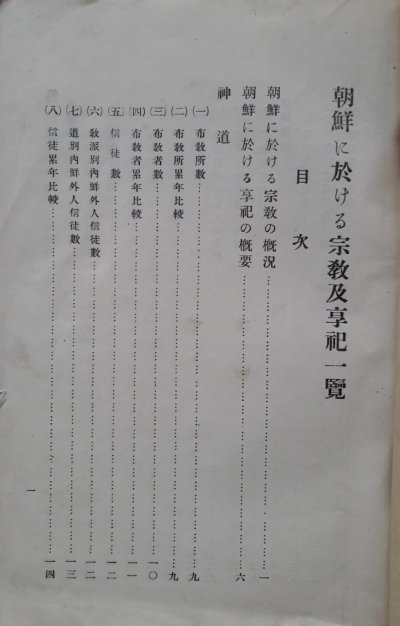 朝鮮に於ける宗教及享祀一覽
目次
朝鮮に於ける宗教の槪況……一
朝鮮に於ける享祀の槪要……六
神道
(一) 布教所數……九
(二) 布教所累年比較……九
(三) 布教者數……一〇
(四) 布教者累年比較……一一
(五) 信徒數……一二
(六) 教派別內鮮外人信徒數……一二
(七) 道別內鮮外人信徒數……一三
(八) 信徒累年比較……一四
一